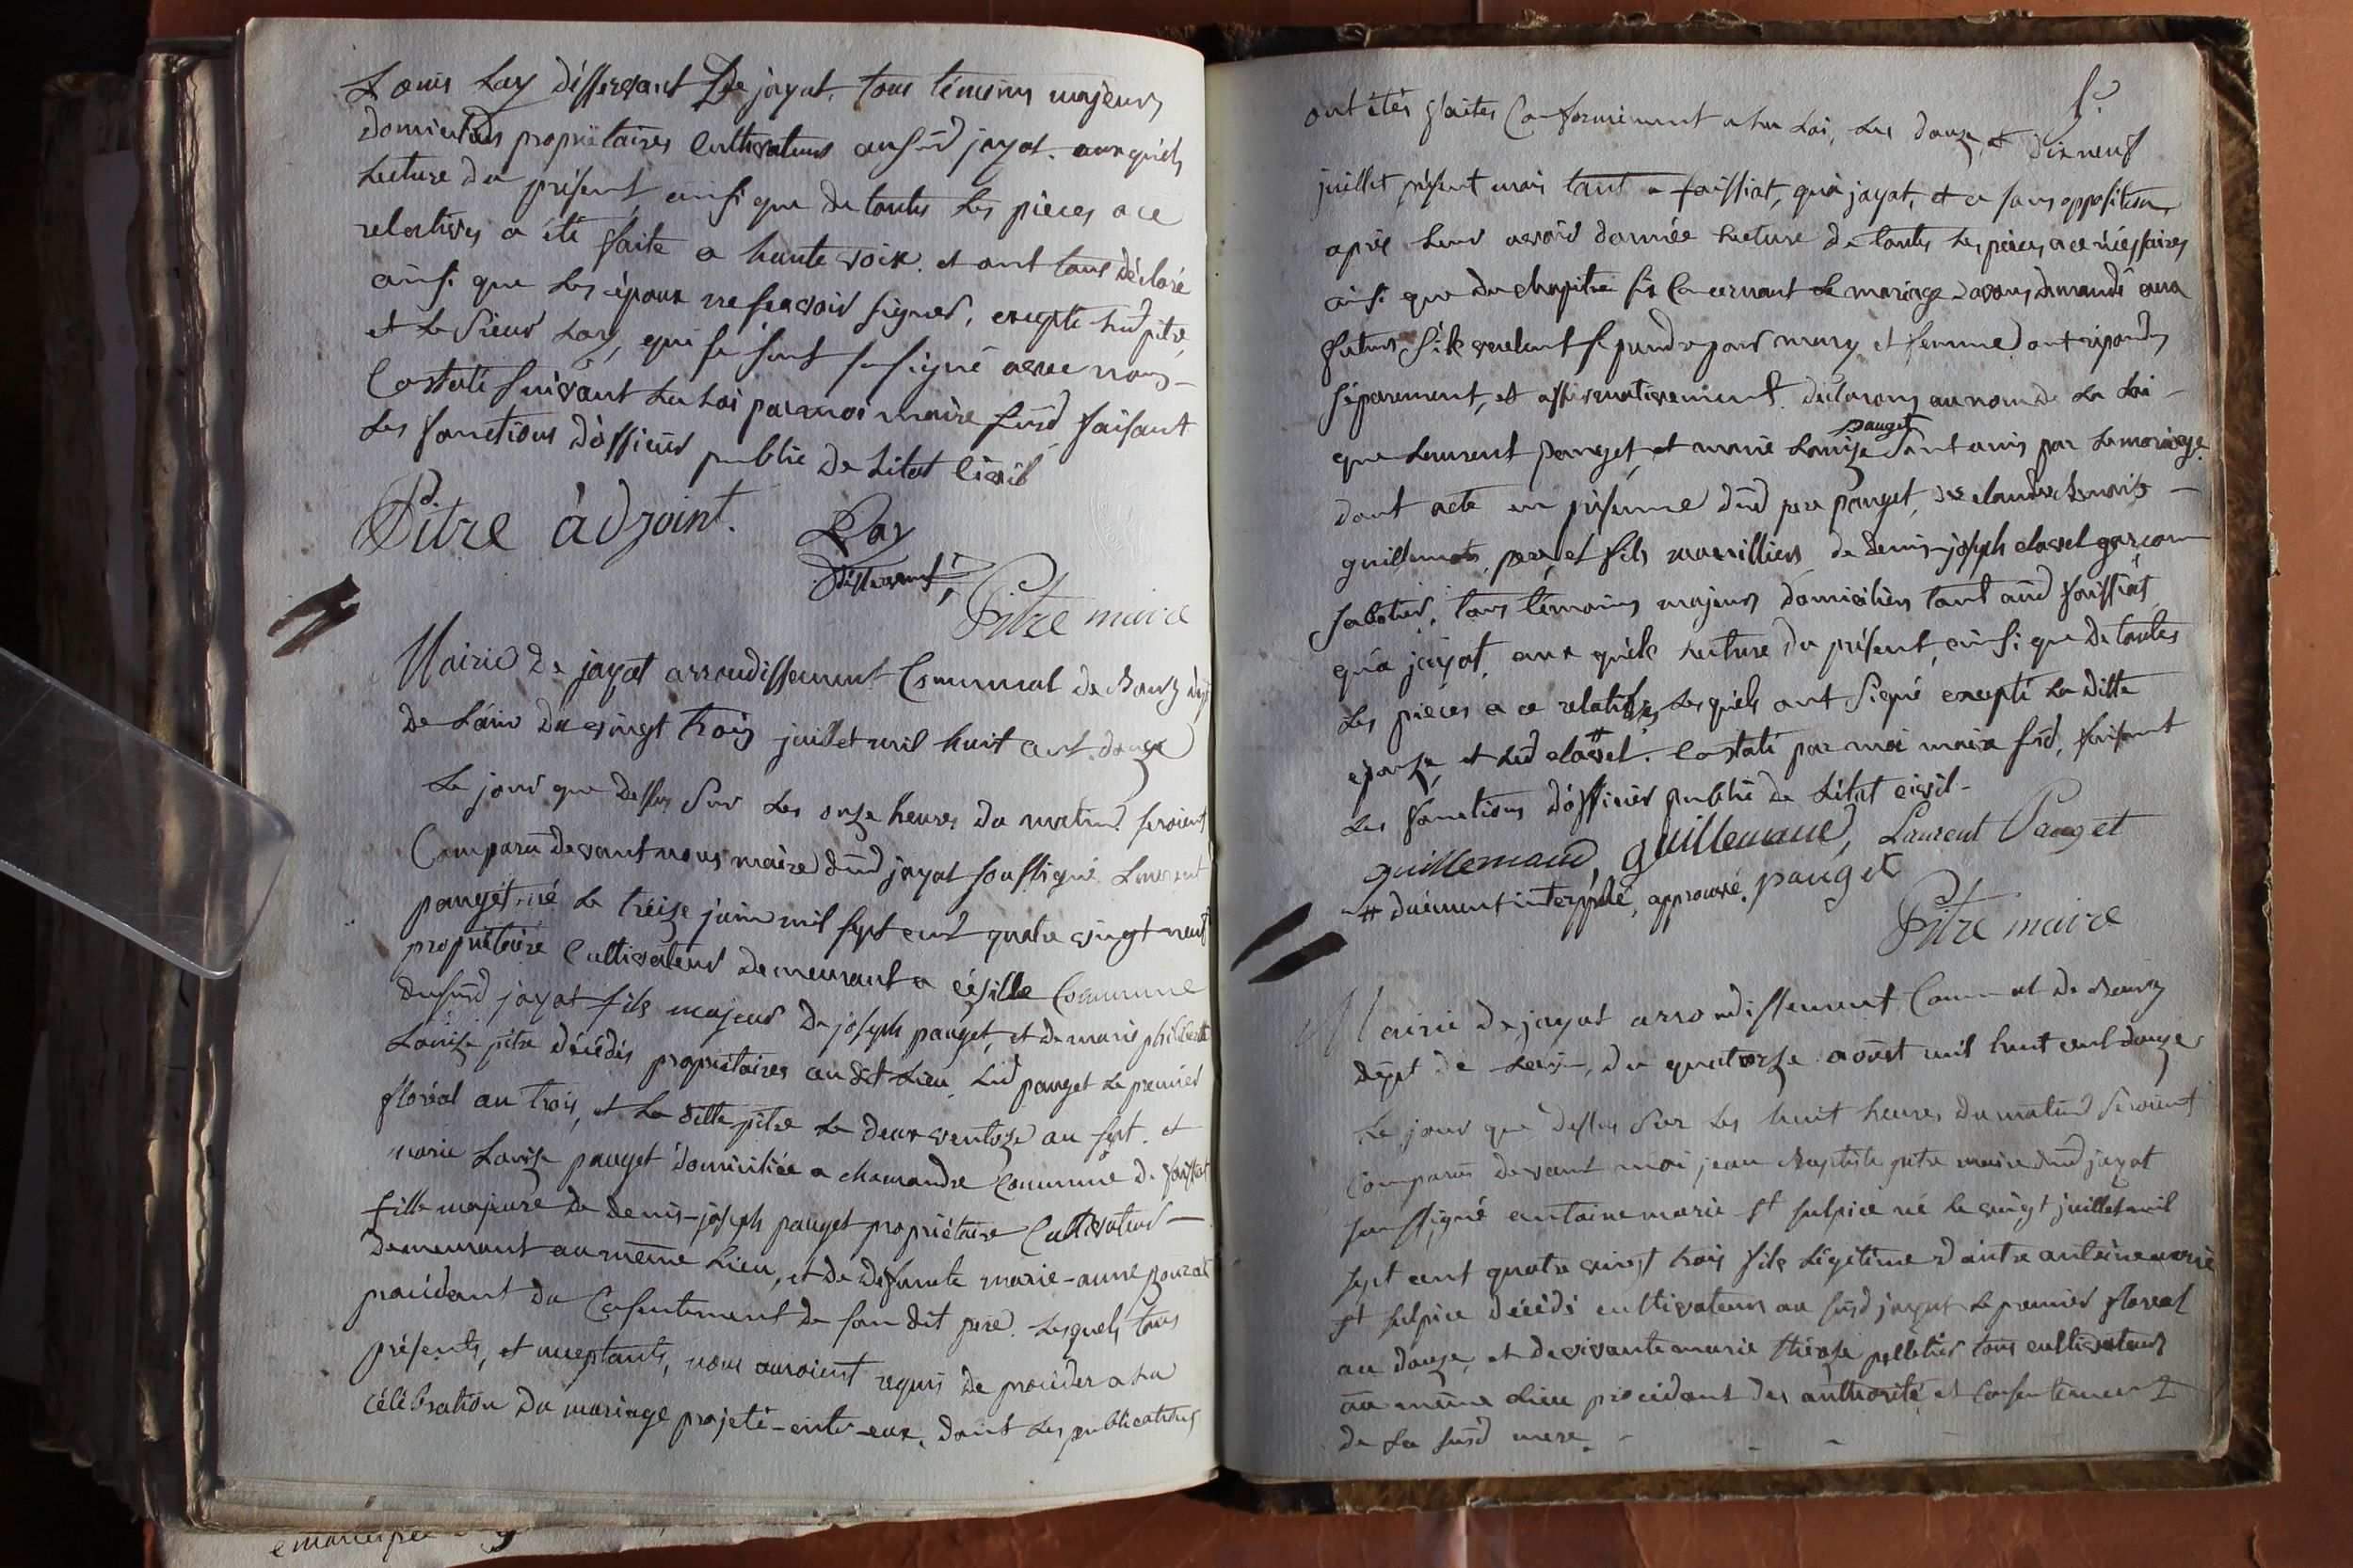 Louis Lay desservant De jayat. tous témoins majeurs
domiciliés propriétaires Cultivateurs au susd jayat. aux quels
Lecture du présent, ainsi que de toutes les pièces a ce
relatives a été faite a haute voix. et ont tous déclaré
ainsi que les époux ne scavoir signer, excepté led pitre,
et le sieur Lay, qui se sont sousigné avec nous -
Constaté suivant La Loi par moi maire susd faisant
Les fonctions d'officier public de L'état Civil
Pitre àdjoint. Lay
desservant
Pitre maire
Mairie de jayat arrondissement Communal de Bourg dept
de L'ain du vingt trois juillet mil huit cent douze
Le jour que dessus sur Les onze heures du matin seroient
Comparu devant nous maire dud jayat soussigné Laurent
pauget, né Le treize juin mil sept cent quatre vingt neuf
propriétaire Cultivateur demeurant a Césille Commune
dusud jayat fils majeur de joseph pauget, et de marie philiberte
Louise pitre décédés propriétaires au dit Lieu, Led pauget Le premier
floréal an trois, et La ditte pitre Le deux ventoze an sept. et
marie Louise pauget domiciliée a chamandre Commune de foissiat
fille majeure de denis-joseph pauget propriétaire Cultivateur -
demeurant au même Lieu, et de defunte marie-anne pouzat
procédant du Consentement de son dit pere. Lesquels tous
présents, et acceptants, nous auroient requis de procéder a La
célébration du mariage projeté-entr-eux, dont Les publications
ont étés faites Conformément a La Loi, Les douze, et dix neuf
juillet présent mois tant a foissiat, qu'a jayat, et ce sans opposition,
après Leur avoir donnée Lecture de toutes Les pièces a ce nécessaires
ainsi que du chapitre six Concernant Le mariage avons demandé aux
futurs s'ils veulent se prendre pour mary et femme, ont répondu
séparement, et affirmativement. declarons au nom de La Loi -
pauget
que Laurent pauget, et marie Louise sont unis par Le mariage.
dont acte en présence dud pere pauget, de claude denoix -
guillemot, pere, et fils marilliers de denis-joseph clavel garçon
sabotier. tous témoins majeurs domiciliés tant aud foissiat,
qu'a jayat, aux quels Lecture du présent, ainsi que de toutes
Les pièces a ce relatives, Lesquels ont signé excepté La ditte
epouse, et Led clavel #. Constaté par moi maire susd, faisant
Les fonctions d'officier public de L'état civil -
guillemaud, guillemaud, Laurent Pauget
# duement interpellé, approuvé. pauget
Pitre maire
Mairie de jayat arrondissement Communal de Bourg
dept de Lain, du quatorze aoust mil huit cent douze
Le jour que dessus sur Les huit heures du matin seroient
Comparus devant moi jean Baptiste pitre maire dud jayat
soussigné antoine marie St sulpice né le vingt juillet mil
sept cent quatre vingt trois fils Légitime d'autre antoine marie
St sulpice décédé cultivateur au susd jayat Le premier floréal
an douze, et de vivante marie thérese pelletier tous cultivateurs
au même Lieu procédant des authorité et Consentement
de La susd mere